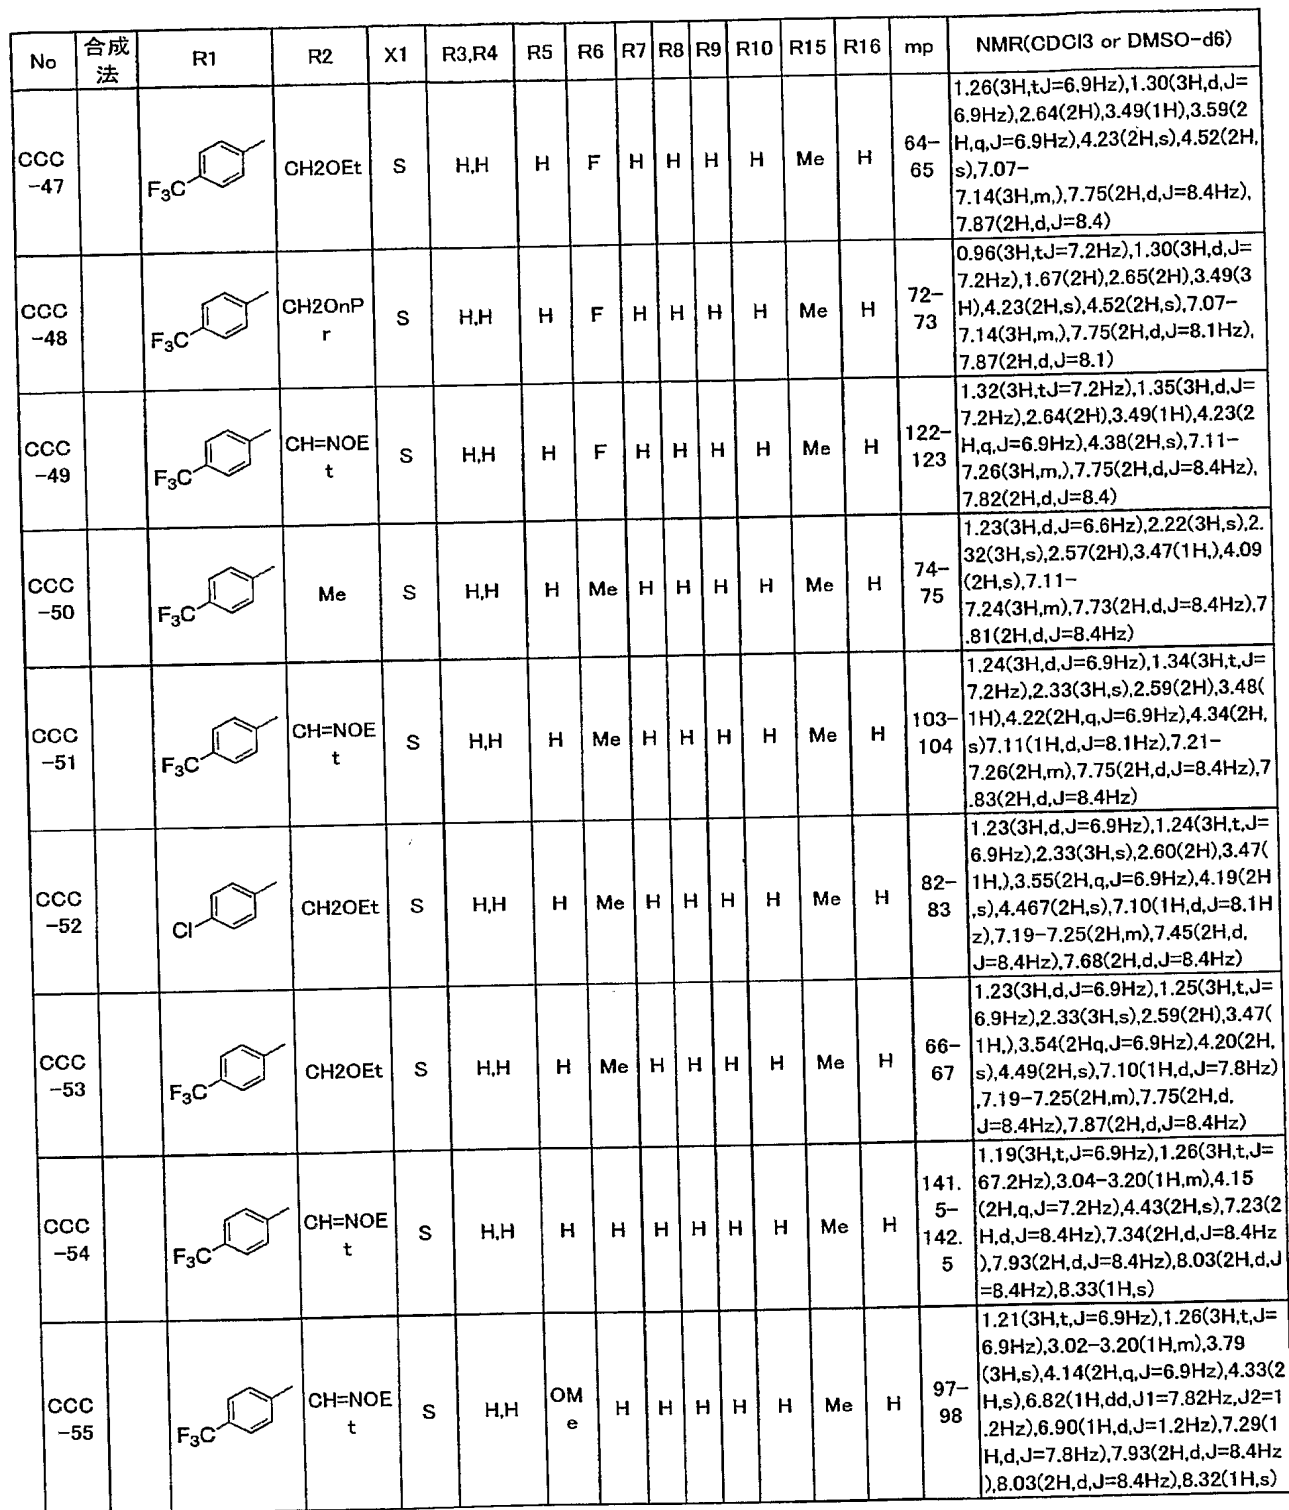 No 合成法 R1 R2 X1 R3,R4 R5 R6 R7 R8 R9 R10 R15 R16 mp NMR(CDCl3 or DMSO-d6)
CCC-47 F₃C CH2OEt S H,H H F H H H H Me H 64-65
1.26(3H,tJ=6.9Hz),1.30(3H,d,J=
6.9Hz),2.64(2H),3.49(1H),3.59(2
H,q,J=6.9Hz),4.23(2H,s),4.52(2H,
s),7.07-
7.14(3H,m,),7.75(2H,d,J=8.4Hz),
7.87(2H,d,J=8.4)
CCC-48 F₃C CH2OnPr S H,H H F H H H H Me H 72-73
0.96(3H,tJ=7.2Hz),1.30(3H,d,J=
7.2Hz),1.67(2H),2.65(2H),3.49(3
H),4.23(2H,s),4.52(2H,s),7.07-
7.14(3H,m,),7.75(2H,d,J=8.1Hz),
7.87(2H,d,J=8.1)
CCC-49 F₃C CH=NOEt S H,H H F H H H H Me H 122-123
1.32(3H,tJ=7.2Hz),1.35(3H,d,J=
7.2Hz),2.64(2H),3.49(1H),4.23(2
H,q,J=6.9Hz),4.38(2H,s),7.11-
7.26(3H,m,),7.75(2H,d,J=8.4Hz),
7.82(2H,d,J=8.4)
CCC-50 F₃C Me S H,H H Me H H H H Me H 74-75
1.23(3H,d,J=6.6Hz),2.22(3H,s),2.
32(3H,s),2.57(2H),3.47(1H,),4.09
(2H,s),7.11-
7.24(3H,m),7.73(2H,d,J=8.4Hz),7
.81(2H,d,J=8.4Hz)
CCC-51 F₃C CH=NOEt S H,H H Me H H H H Me H 103-104
1.24(3H,d,J=6.9Hz),1.34(3H,t,J=
7.2Hz),2.33(3H,s),2.59(2H),3.48(
1H),4.22(2H,q,J=6.9Hz),4.34(2H,
s)7.11(1H,d,J=8.1Hz),7.21-
7.26(2H,m),7.75(2H,d,J=8.4Hz),7
.83(2H,d,J=8.4Hz)
CCC-52 Cl CH2OEt S H,H H Me H H H H Me H 82-83
1.23(3H,d,J=6.9Hz),1.24(3H,t,J=
6.9Hz),2.33(3H,s),2.60(2H),3.47(
1H,),3.55(2H,q,J=6.9Hz),4.19(2H
,s),4.467(2H,s),7.10(1H,d,J=8.1H
z),7.19-7.25(2H,m),7.45(2H,d,
J=8.4Hz),7.68(2H,d,J=8.4Hz)
CCC-53 F₃C CH2OEt S H,H H Me H H H H Me H 66-67
1.23(3H,d,J=6.9Hz),1.25(3H,t,J=
6.9Hz),2.33(3H,s),2.59(2H),3.47(
1H,),3.54(2Hq,J=6.9Hz),4.20(2H,
s),4.49(2H,s),7.10(1H,d,J=7.8Hz)
,7.19-7.25(2H,m),7.75(2H,d,
J=8.4Hz),7.87(2H,d,J=8.4Hz)
CCC-54 F₃C CH=NOEt S H,H H H H H H H Me H 141.5-142.5
1.19(3H,t,J=6.9Hz),1.26(3H,t,J=
67.2Hz),3.04-3.20(1H,m),4.15
(2H,q,J=7.2Hz),4.43(2H,s),7.23(2
H,d,J=8.4Hz),7.34(2H,d,J=8.4Hz
),7.93(2H,d,J=8.4Hz),8.03(2H,d,J
=8.4Hz),8.33(1H,s)
CCC-55 F₃C CH=NOEt S H,H OMe H H H H H Me H 97-98
1.21(3H,t,J=6.9Hz),1.26(3H,t,J=
6.9Hz),3.02-3.20(1H,m),3.79
(3H,s),4.14(2H,q,J=6.9Hz),4.33(2
H,s),6.82(1H,dd,J1=7.82Hz,J2=1
.2Hz),6.90(1H,d,J=1.2Hz),7.29(1
H,d,J=7.8Hz),7.93(2H,d,J=8.4Hz
),8.03(2H,d,J=8.4Hz),8.32(1H,s)